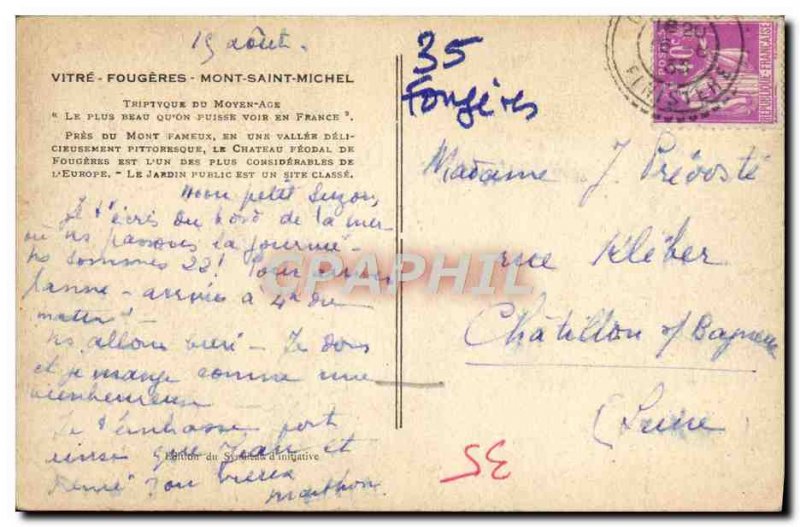 15 août.
VITRÉ - FOUGÈRES - MONT-SAINT-MICHEL
TRIPTYQUE DU MOYEN-AGE
" LE PLUS BEAU QU'ON PUISSE VOIR EN FRANCE ".
PRÈS DU MONT FAMEUX, EN UNE VALLÉE DÉLI-
CIEUSEMENT PITTORESQUE, LE CHATEAU FÉODAL DE
FOUGÈRES EST L'UN DES PLUS CONSIDÉRABLES DE
L'EUROPE. - LE JARDIN PUBLIC EST UN SITE CLASSÉ.
Mon petit Suzon,
Je t'écris du bord de la mer
où ns passons la journée -
ns sommes 22!
panne - arrivée à 4h du
matin -
ns allons bien - Je dors
et je mange comme une
bienheureuse
Je t'embrasse fort
ainsi que Jean et
Édition du Syndicat d'initiative
35
Fougères
FINISTERE
POSTES
40c
REPUBLIQUE FRANÇAISE
Madame J. Prévosté
rue Kléber
Châtillon s/ Bagneux
(Seine
5E
CPAPHIL